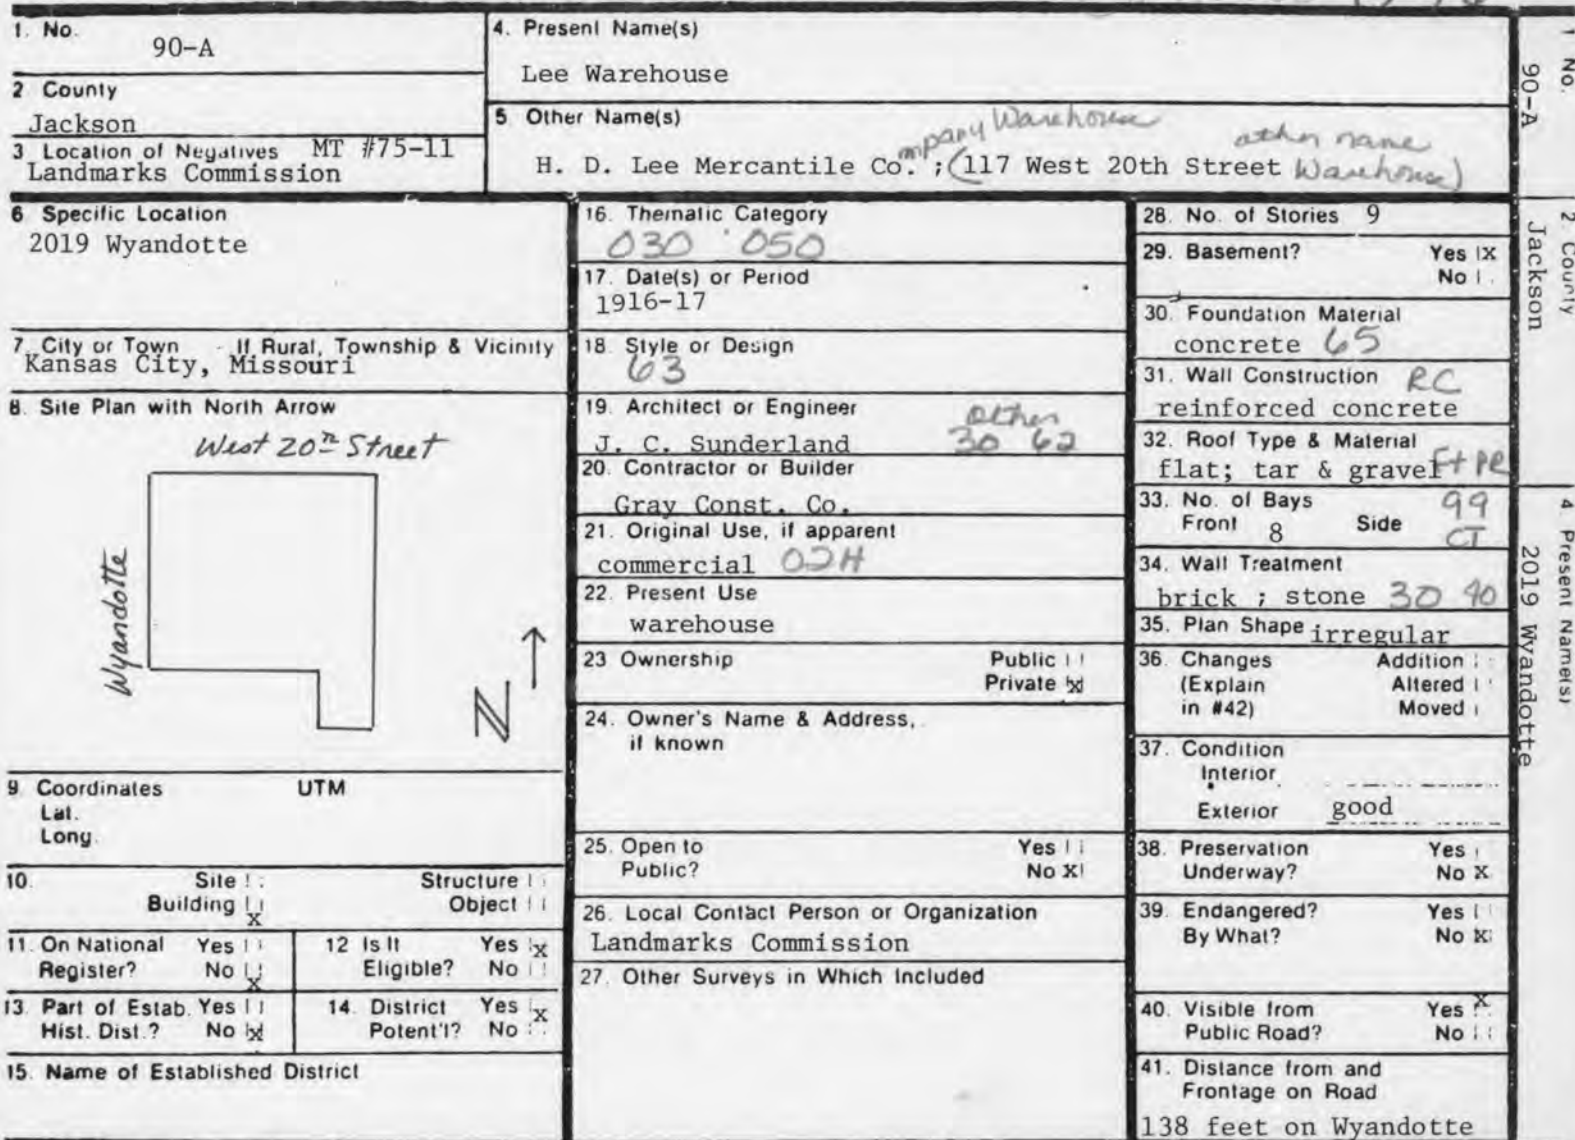 1. No.
90-A
2 County
Jackson
3 Location of Negatives MT #75-11
Landmarks Commission
4. Present Name(s)
Lee Warehouse
5 Other Name(s)
H. D. Lee Mercantile Company Warehouse; (117 West 20th Street Warehouse) other name
6 Specific Location
2019 Wyandotte
7 City or Town If Rural, Township & Vicinity
Kansas City, Missouri
8. Site Plan with North Arrow
West 20th Street
Wyandotte
N
9. Coordinates UTM
Lat.
Long.
10. Site Structure
Building X Object
11. On National Yes
Register? No X
12 Is It Yes X
Eligible? No
13. Part of Estab. Yes
Hist. Dist.? No X
14. District Yes X
Potent'l? No
15. Name of Established District
16. Thematic Category
030 050
17. Date(s) or Period
1916-17
18. Style or Design
63
19. Architect or Engineer
other
J. C. Sunderland 30 62
20. Contractor or Builder
Gray Const. Co.
21. Original Use, if apparent
commercial 02H
22. Present Use
warehouse
23 Ownership Public
Private X
24. Owner's Name & Address,
if known
25. Open to Yes
Public? No X
26. Local Contact Person or Organization
Landmarks Commission
27. Other Surveys in Which Included
28. No. of Stories 9
29. Basement? Yes X
No
30. Foundation Material
concrete 65
31. Wall Construction RC
reinforced concrete
32. Roof Type & Material
flat; tar & gravel Ft PR
33. No. of Bays 99
Front 8 Side CT
34. Wall Treatment
brick ; stone 30 40
35. Plan Shape irregular
36. Changes Addition
(Explain Altered
in #42) Moved
37. Condition
Interior
Exterior good
38. Preservation Yes
Underway? No X
39. Endangered? Yes
By What? No X
40. Visible from Yes X
Public Road? No
41. Distance from and
Frontage on Road
138 feet on Wyandotte
1 No.
90-A
2. County
Jackson
4 Present Name(s)
2019 Wyandotte